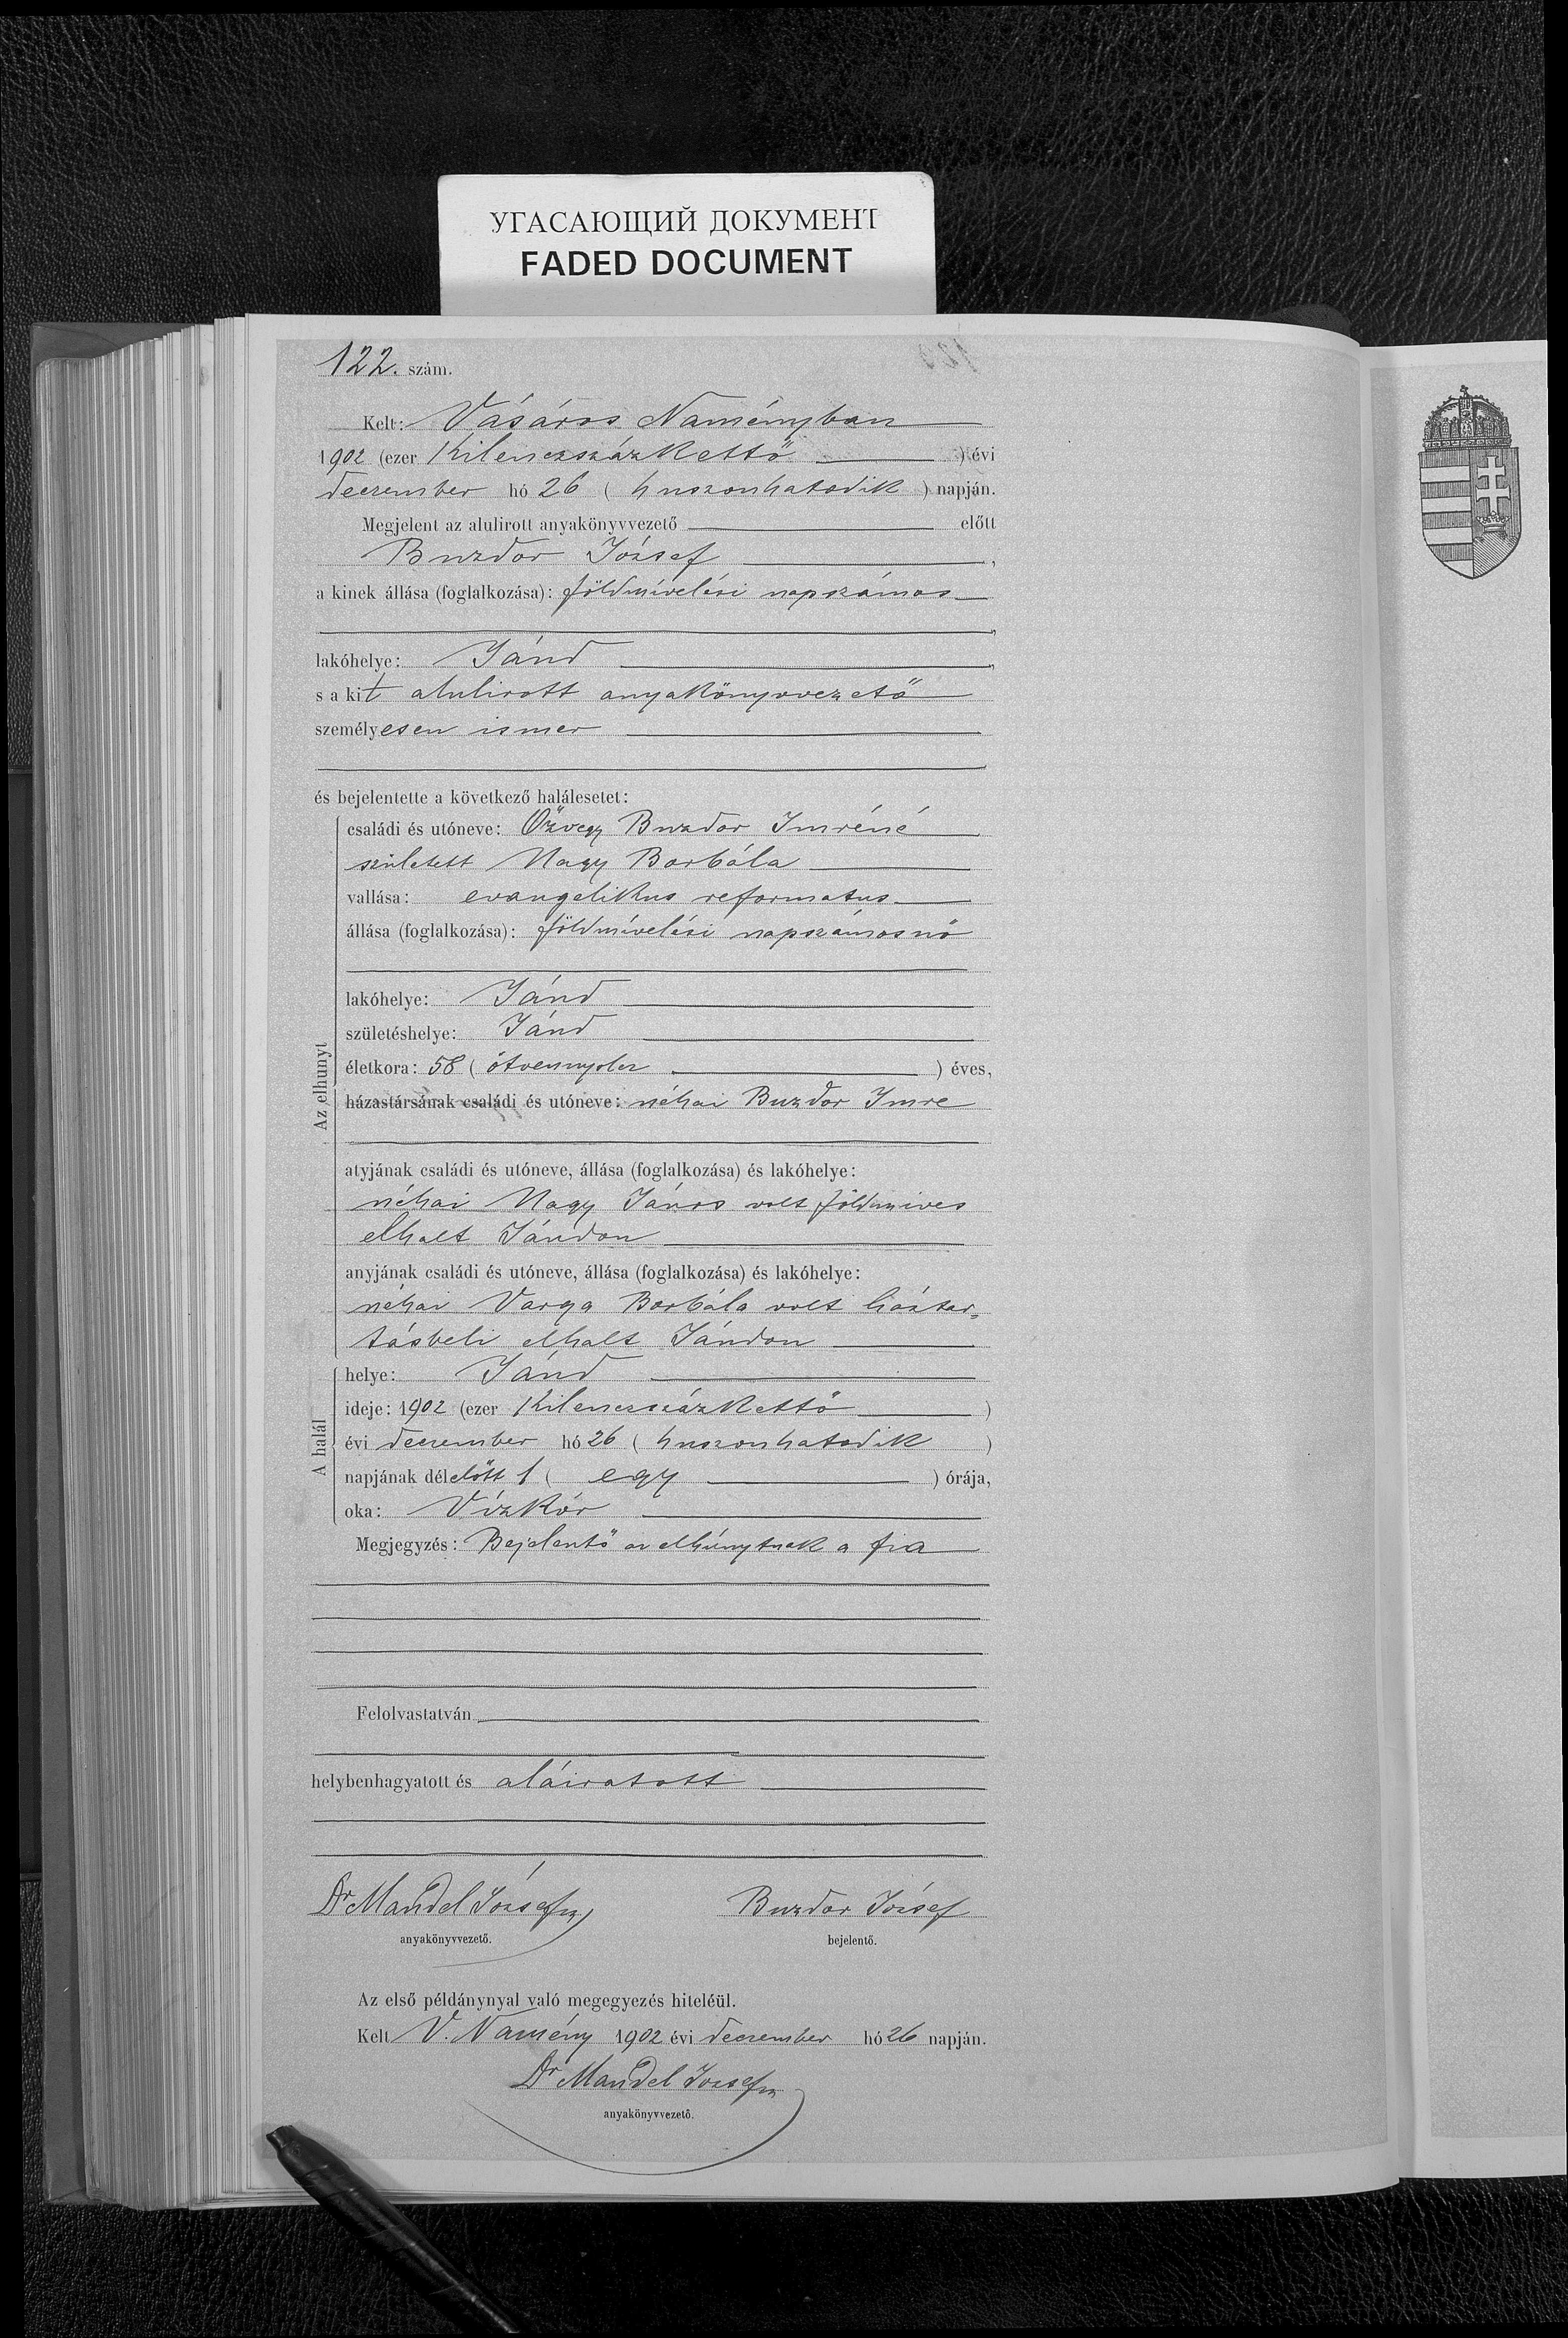 УГАСАЮЩИЙ ДОКУМЕНТ
FADED DOCUMENT
122. szám.
Kelt: Vásáros Naményban
1902 (ezer Kilenczszázkettő ) évi
deczember hó 26 ( huszonhatodik ) napján.
Megjelent az alulirott anyakönyvvezető előtt
Buzdor József ,
a kinek állása (foglalkozása): földmívelési napszámos
,
lakóhelye: Jánd ,
s a kit alulirott anyakönyvvezető
személyesen ismer
és bejelentette a következő halálesetet:
Az elhunyt
családi és utóneve: Özvegy Buzdor Imréné
született Nagy Borbála
vallása: evangelikus reformatus
állása (foglalkozása): földmívelési napszámosnő
lakóhelye: Jánd
születéshelye: Jánd
életkora: 58 ( ötvennyolcz ) éves,
házastársának családi és utóneve: néhai Buzdor Imre
atyjának családi és utóneve, állása (foglalkozása) és lakóhelye:
néhai Nagy János volt földmives
elhalt Jándon
anyjának családi és utóneve, állása (foglalkozása) és lakóhelye:
néhai Varga Borbála volt háztar„
tásbeli elhalt Jándon
A halál
helye: Jánd
ideje: 1902 (ezer Kilenczszázkettő )
évi deczember hó 26 ( huszonhatodik )
napjának délelőtt 1 ( egy ) órája,
oka: Vízkór
Megjegyzés: Bejelentő az elhúnytnak a fia
Felolvastatván
helybenhagyatott és aláiratott
Dr Mandel József
Buzdor József
anyakönyvvezető.
bejelentő.
Az első példánynyal való megegyezés hiteléül.
Kelt V. Namény 1902 évi deczember hó 26 napján.
Dr Mandel József
anyakönyvvezető.